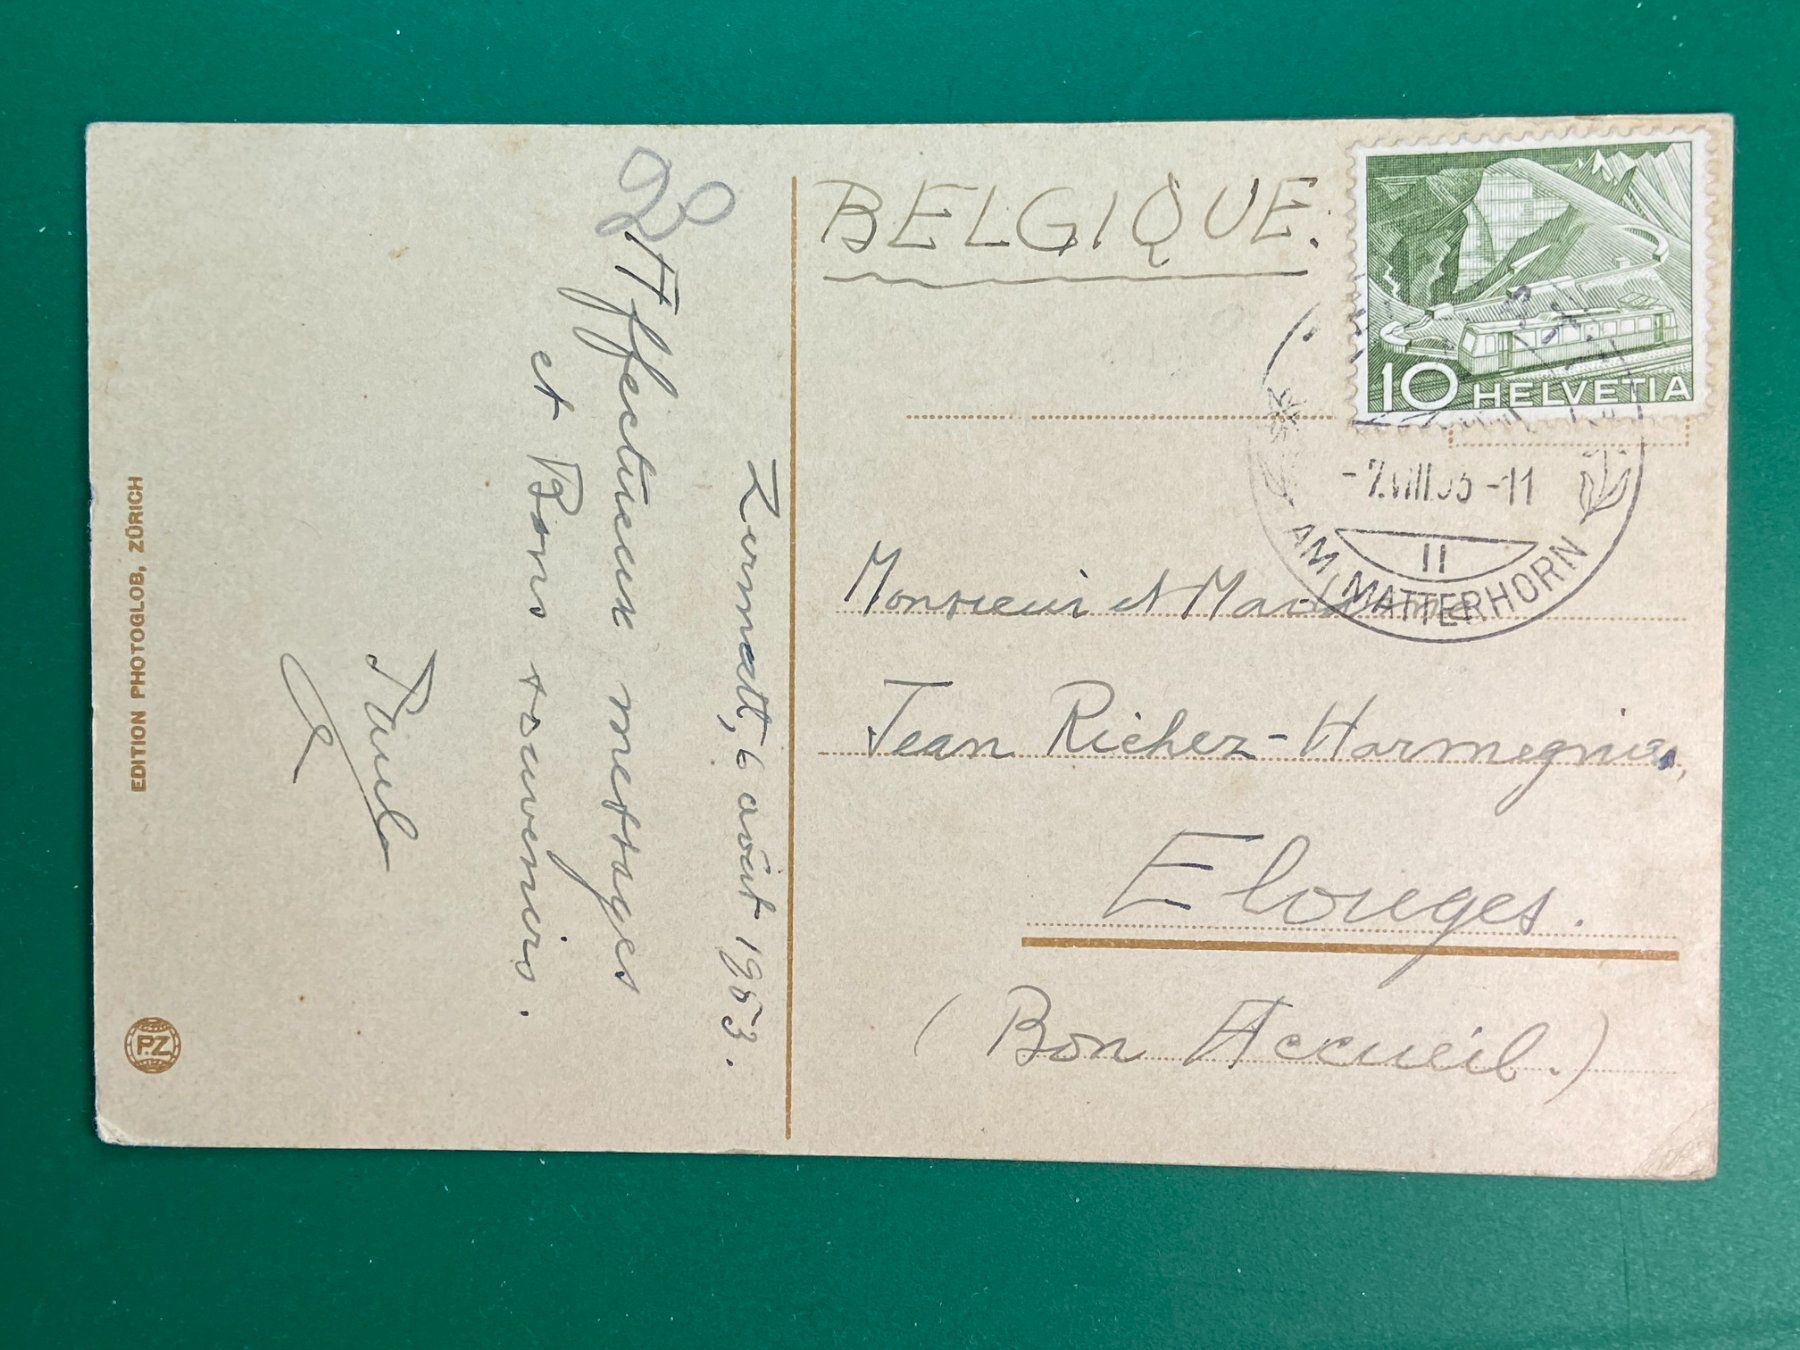 BELGIQUE.
10 HELVETIA
-7.VIII.53-11
II
AM MATTERHORN
Monsieur et Madame
Jean Richez-Harmegnies,
Elouges.
(Bon Accueil.)
Zermatt, 6 août 1953.
Affectueux messages
et Bons souvenirs.
Paula
EDITION PHOTOGLOB, ZÜRICH
PZ